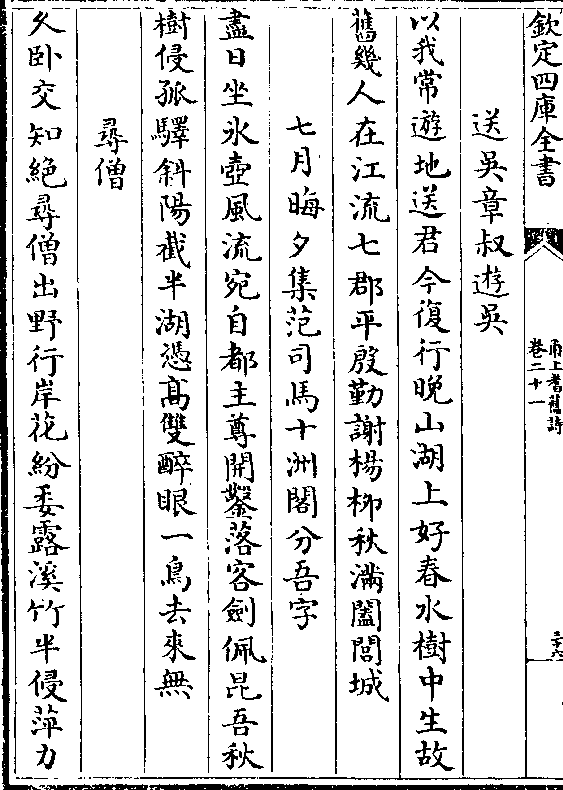 欽定四庫全書
甬上耆舊詩
卷二十一
二十六
送吳章叔遊吳
以我常遊地送君今復行晚山湖上好春水樹中生故
舊幾人在江流七郡平殷勤謝楊柳秋滿闔閭城
七月晦夕集范司馬十洲閣分吾字
盡日坐氷壺風流宛自都主尊開鑿落客劍佩昆吾秋
樹侵孤驛斜陽截半湖憑高雙醉眼一鳥去來無
尋僧
久卧交知絶尋僧出野行岸花紛委露溪竹半侵萍力